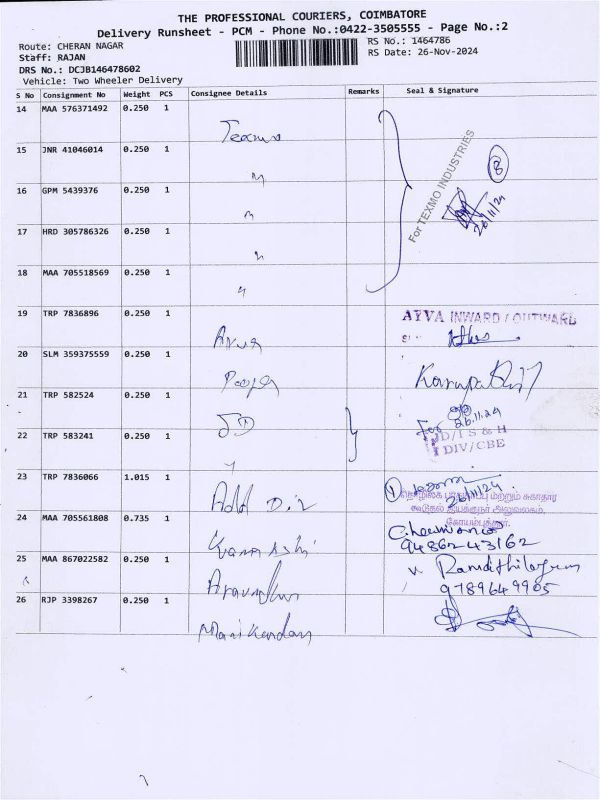 THE PROFESSIONAL COURIERS, COIMBATORE
Delivery Runsheet - PCM - Phone No.:0422-3505555 - Page No.:2
Route: CHERAN NAGAR
RS No.: 1464786
Staff: RAJAN
RS Date: 26-Nov-2024
DRS No.: DCJB146478602
Vehicle: Two Wheeler Delivery
S No Consignment No Weight PCS Consignee Details Remarks Seal & Signature
14 MAA 576371492 0.250 1
15 JNR 41046014 0.250 1
16 GPM 5439376 0.250 1
For TEXMO INDUSTRIES
8
26/11/24
17 HRD 305786326 0.250 1
18 MAA 705518569 0.250 1
19 TRP 7836896 0.250 1
AYVA INWARD / OUTWARD
20 SLM 359375559 0.250 1
21 TRP 582524 0.250 1
For 26.11.24
22 TRP 583241 0.250 1 JD
D/I S & H
DIV/CBE
23 TRP 7836066 1.015 1 Add Dir
1
26/11/24
மற்றும் சுகாதார
கூடுதல் இயக்குநர் அலுவலகம்
கோயம்புத்தூர்.
24 MAA 705561808 0.735 1
9486243162
25 MAA 867022582 0.250 1
9789649905
26 RJP 3398267 0.250 1 Manikandan